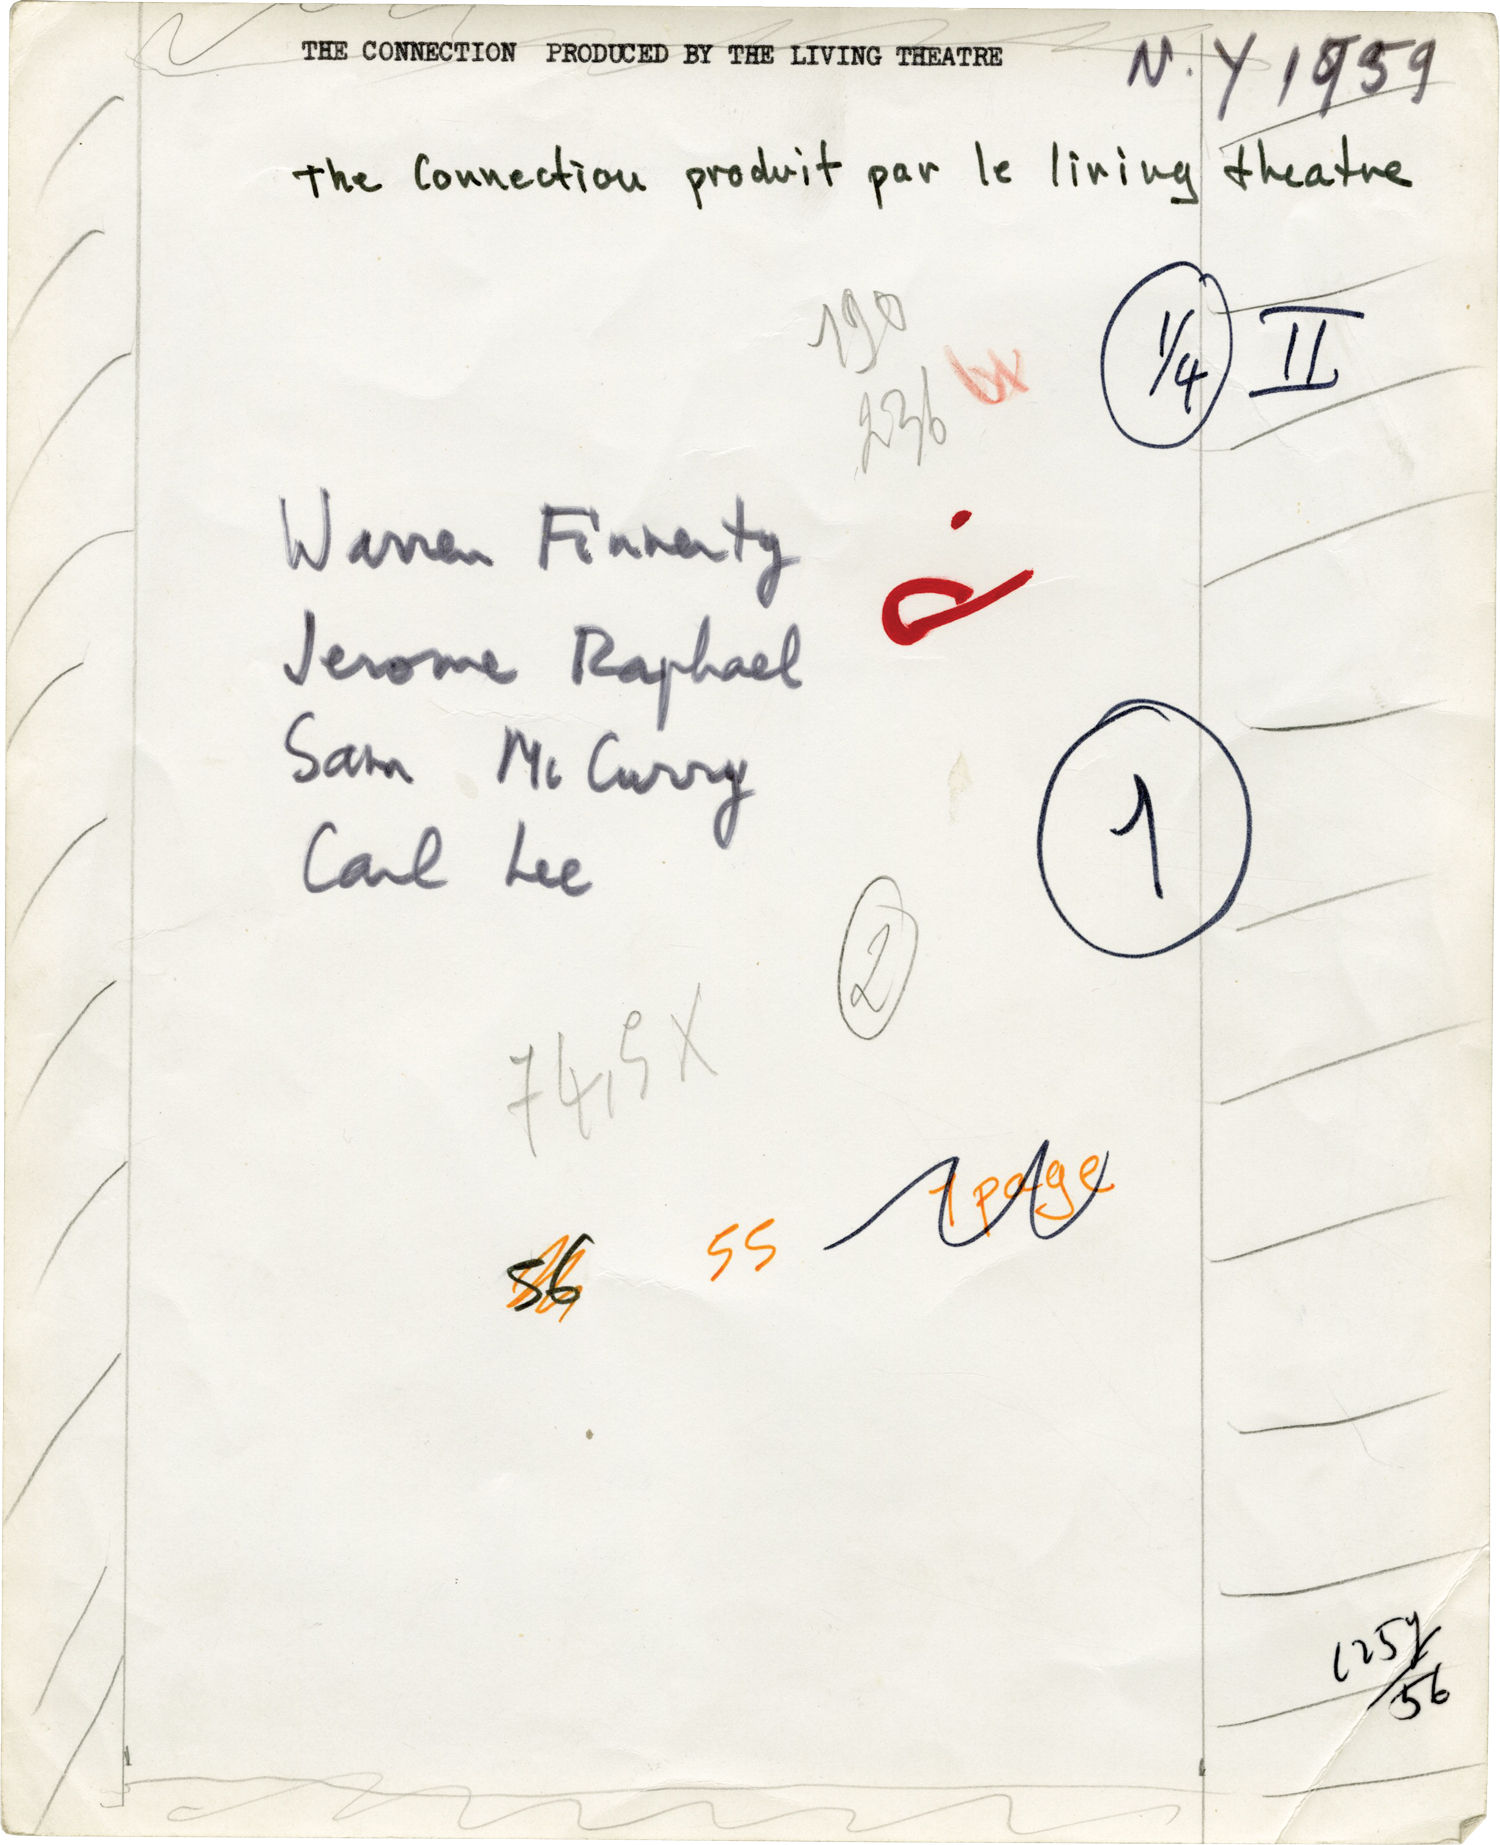 THE CONNECTION PRODUCED BY THE LIVING THEATRE
N.Y 1959
The Connection produit par le living theatre
190
236
1/4 II
Warren Finnerty
Jerome Raphael
Sam McCurry
Carl Lee
1
2
74,5 X
1 page
56 55
56